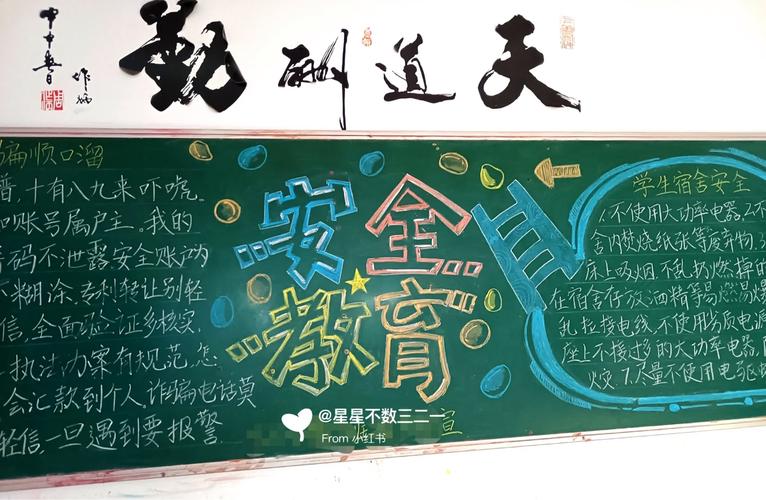 天道酬勤
作炳
骗顺口溜
普,十有八九来吓唬。
账号属户主。我的
码不泄露安全账户为
糊涂,专利转让别轻
信,全面验证多核实,
执法办案有规范,怎
会汇款到个人。诈骗电话莫
轻信,一旦遇到要报警
安全
教育
学生宿舍安全
1.不使用大功率电器,2.不
舍内焚烧纸张等废弃物,3
床上吸烟不乱扔燃掉的
在宿舍存放酒精等易燃易爆
乱拉接电线,不使用劣质电源
座上不接过多的大功率电器,
7.尽量不使用电驱蚊
@星星不数三二一
From 小红书
宣